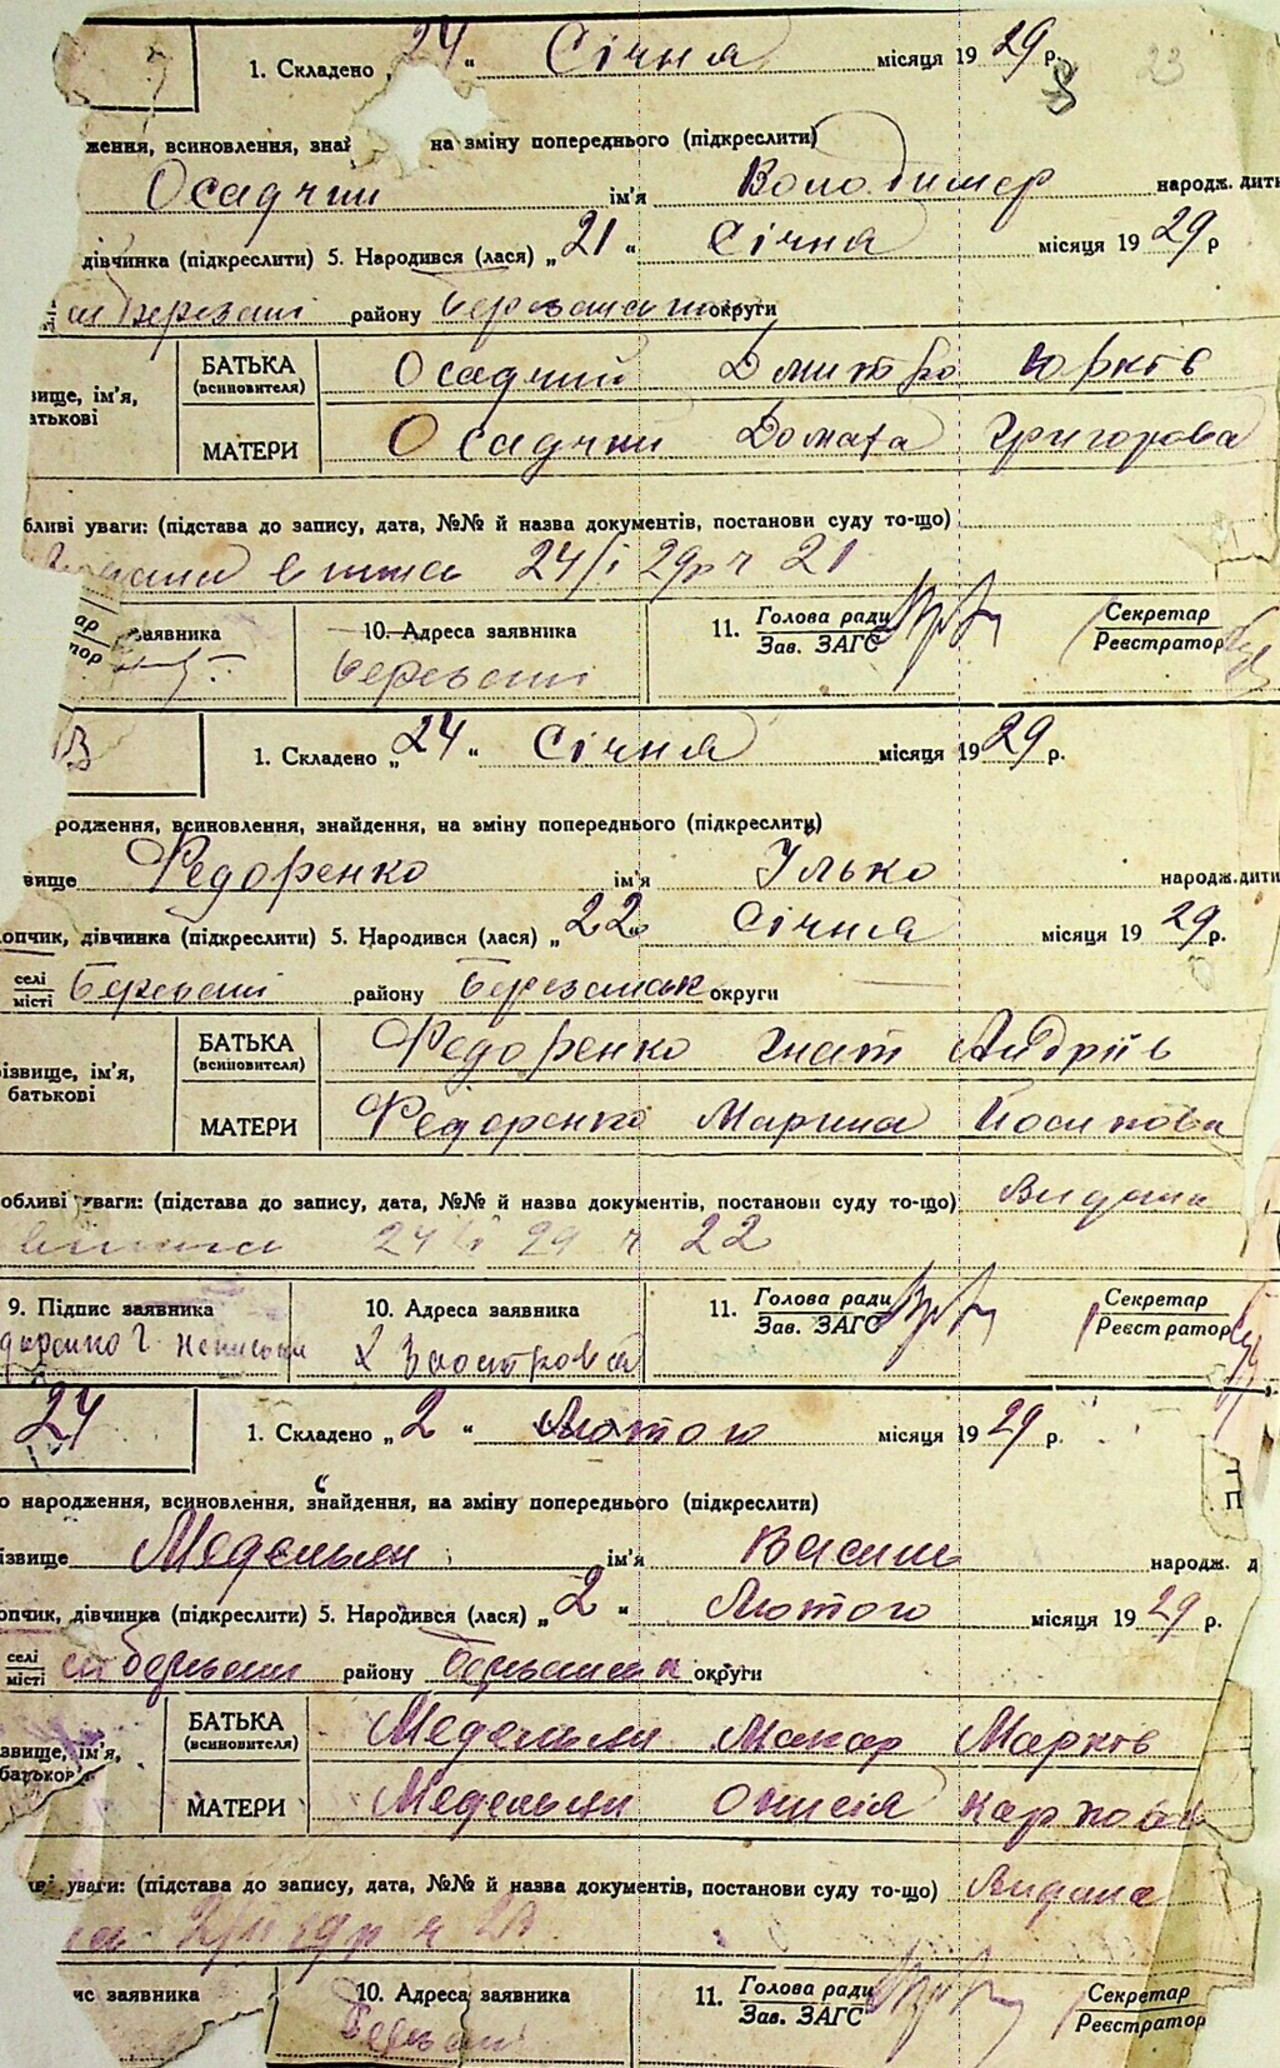 1. Складено „24“ Січня місяця 1929 р.
23
ження, всиновлення, зна на зміну попереднього (підкреслити)
Осадчий ім'я Володимер народж. дити
дівчинка (підкреслити) 5. Народився (лася) „21“ Січня місяця 1929 р
Березані району округи
БАТЬКА (всиновителя) Осадчий Дмитро Юрків
вище, ім'я, атькові
МАТЕРИ Осадчий Домаха Григорова
бливі уваги: (підстава до запису, дата, №№ й назва документів, постанови суду то-що)
24/І 29р ч 21
ар тор заявника 10. Адреса заявника 11. Голова ради Зав. ЗАГС Секретар Реєстратор
Березані
1. Складено „24“ Січня місяця 1929 р.
родження, всиновлення, знайдення, на зміну попереднього (підкреслити)
вище Федоренко ім'я Ілько народж. дити
опчик, дівчинка (підкреслити) 5. Народився (лася) „22“ Січня місяця 1929 р.
селі місті Березані району Березанськ округи
БАТЬКА (всиновителя) Федоренко Гнат Андріїв
ізвище, ім'я, батькові
МАТЕРИ Федоренко Марина Йосипова
обливі уваги: (підстава до запису, дата, №№ й назва документів, постанови суду то-що) Видана
24/І 29 ч 22
9. Підпис заявника 10. Адреса заявника 11. Голова ради Зав. ЗАГС Секретар Реєстратор
24 1. Складено „2“ Лютого місяця 1929 р.
о народження, всиновлення, знайдення, на зміну попереднього (підкреслити)
ізвище ім'я Василь народж. д
опчик, дівчинка (підкреслити) 5. Народився (лася) „2“ Лютого місяця 1929 р.
селі місті району округи
БАТЬКА (всиновителя) Макар Марків
звище, ім'я, батьков
МАТЕРИ Онисія Карпова
ві уваги: (підстава до запису, дата, №№ й назва документів, постанови суду то-що) Видана
2/ІІ 29р ч
ис заявника 10. Адреса заявника 11. Голова ради Зав. ЗАГС Секретар Реєстратор